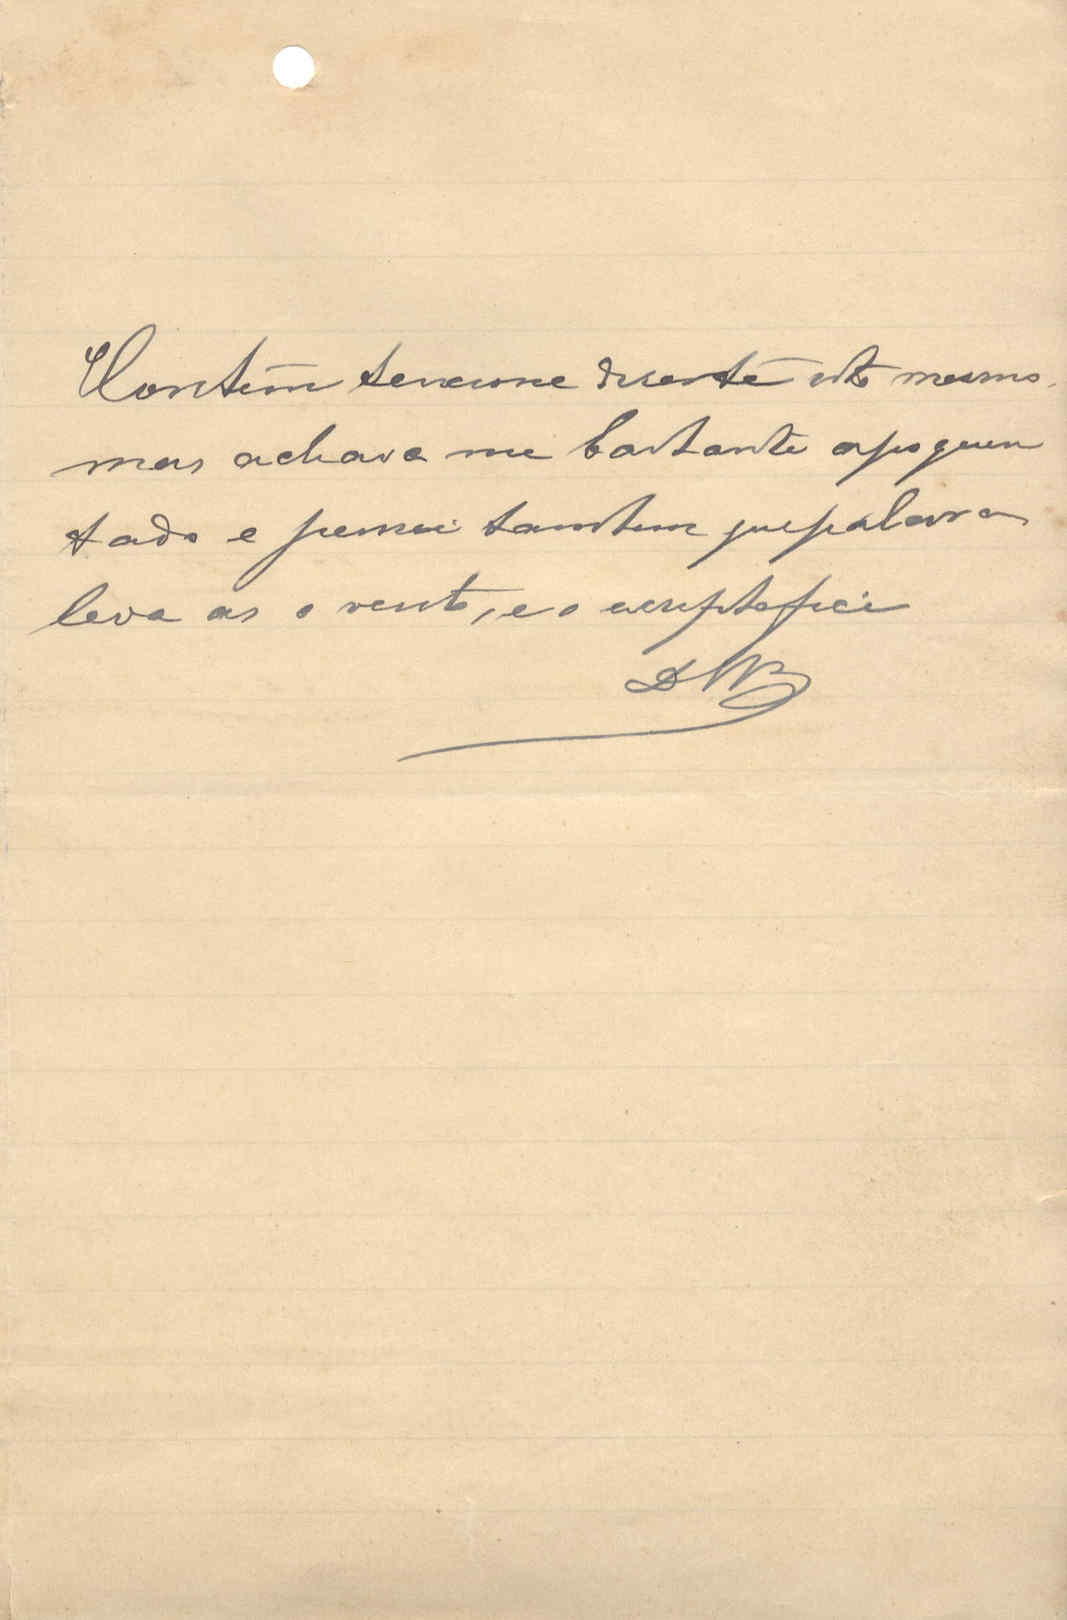 Hontem tencione diserte isto mesmo,
mas achava me bastante apoquen
tado e pensei tambem que palavra
leva as o vento, e o escripto fica
DWB